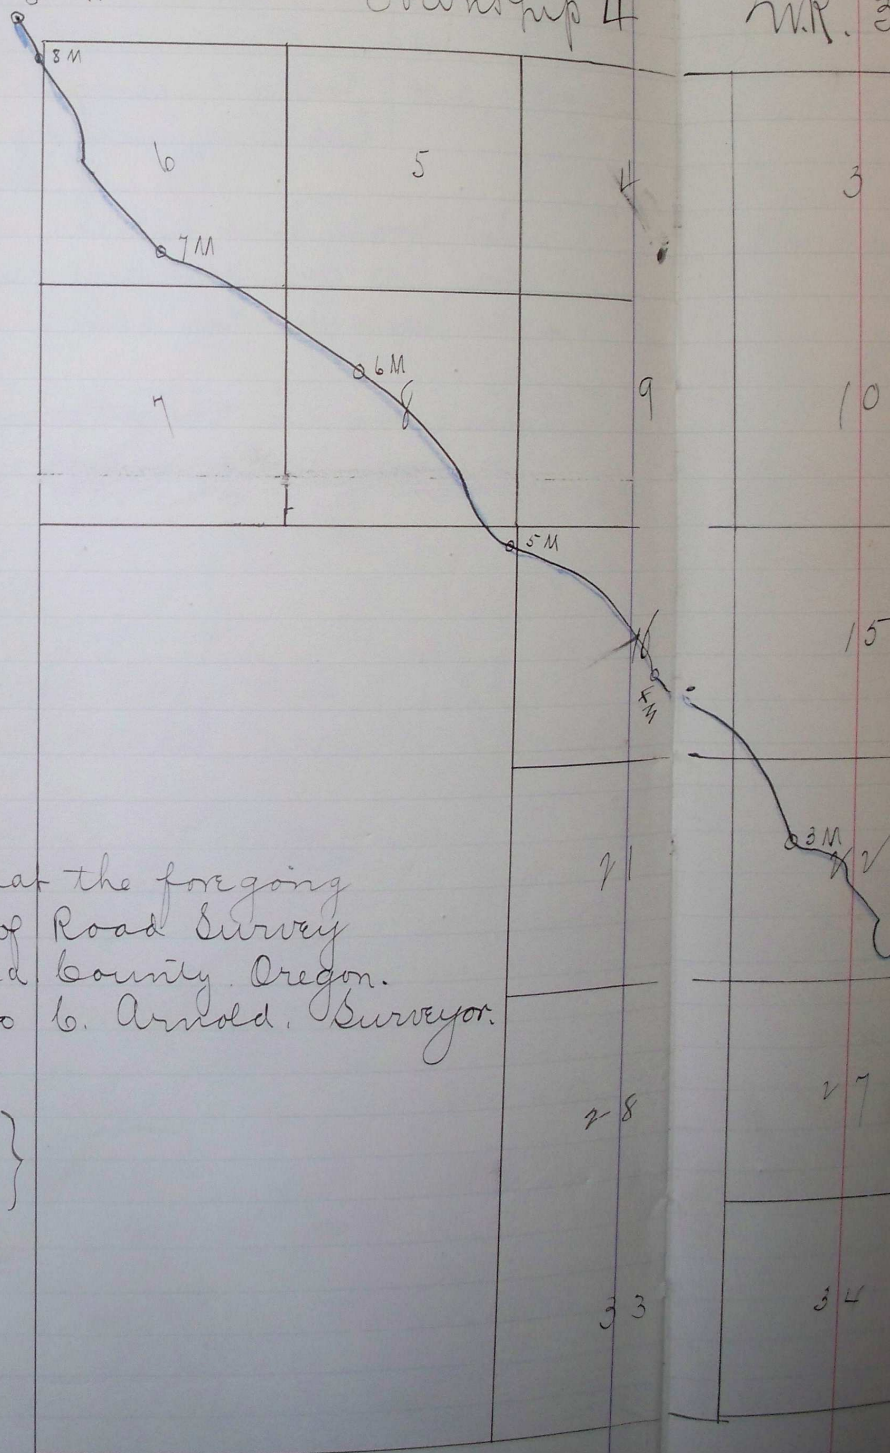 Township 4
W.R. 3
8 M
6
5
4
3
7 M
6 M
7
8
9
10
5 M
16
15
4 M
3 M
21
22
the foregoing
of Road Survey
County Oregon.
C. Arnold, Surveyor.
28
27
33
34